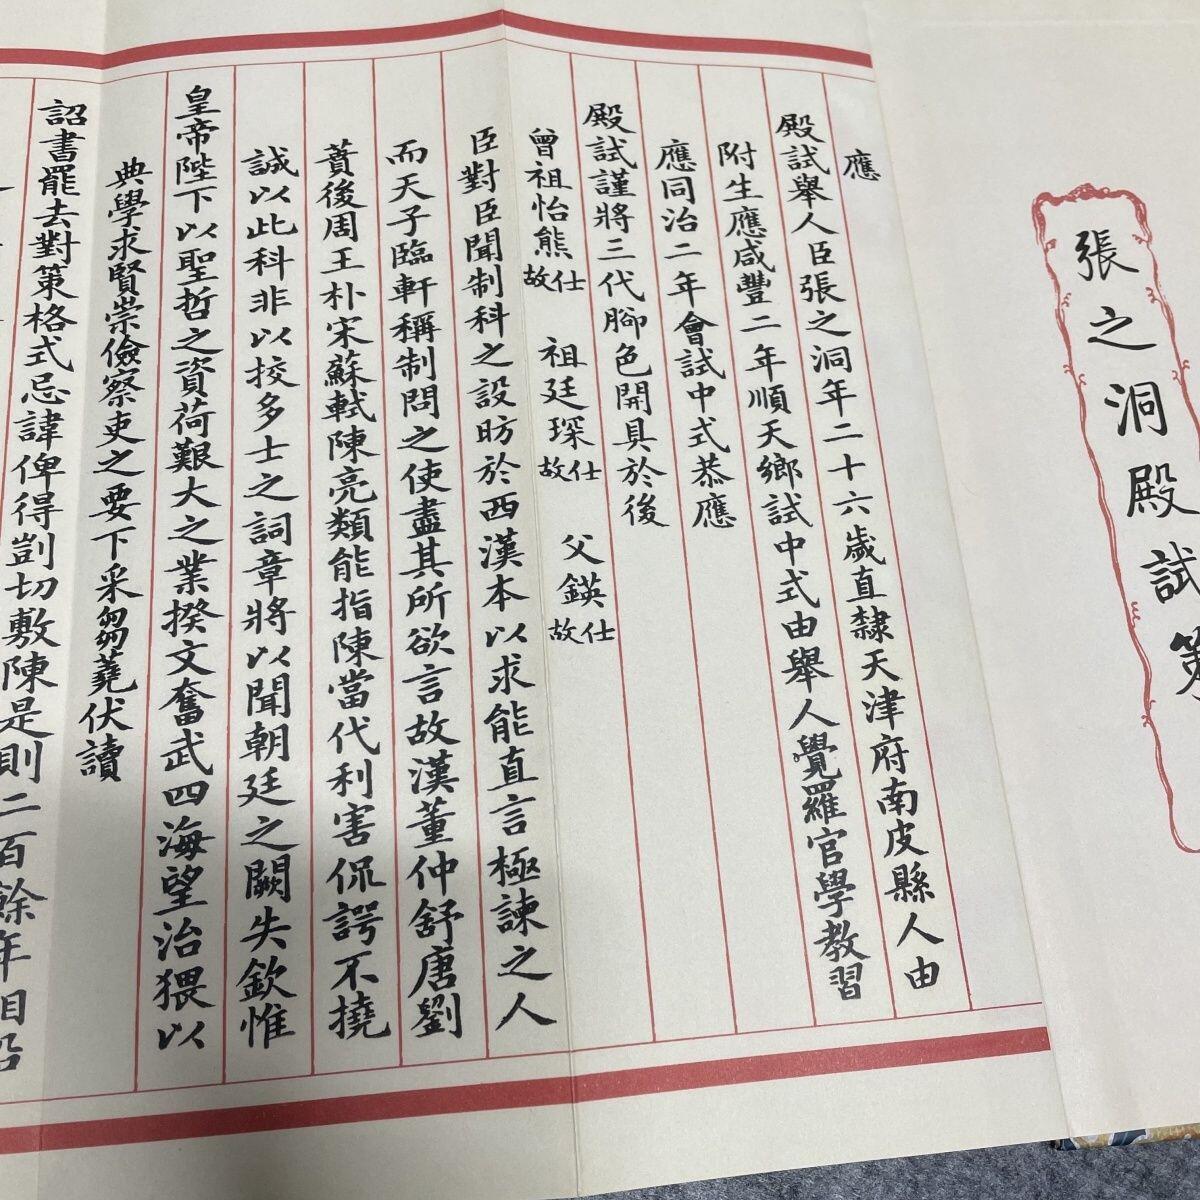 張之洞殿試策
應
殿試舉人臣張之洞年二十六歲直隸天津府南皮縣人由
附生應咸豐二年順天鄉試中式由舉人覺羅官學教習
應同治二年會試中式恭應
殿試謹將三代腳色開具於後
曾祖怡熊仕故 祖廷琛仕故 父鍈仕故
臣對臣聞制科之設昉於西漢本以求能直言極諫之人
而天子臨軒稱制問之使盡其所欲言故漢董仲舒唐劉
蕡後周王朴宋蘇軾陳亮類能指陳當代利害侃諤不撓
誠以此科非以挍多士之詞章將以聞朝廷之闕失欽惟
皇帝陛下以聖哲之資荷艱大之業揆文奮武四海望治猥以
典學求賢崇儉察吏之要下采芻蕘伏讀
詔書罷去對策格式忌諱俾得剴切敷陳是則二百餘年相沿